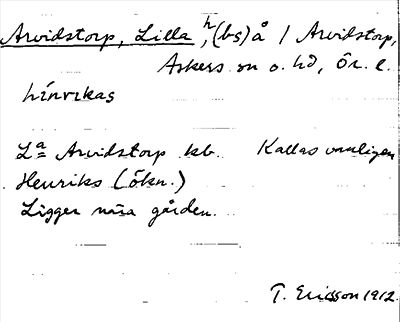 Arvidstorp, Lilla, h(bs)å / Arvidstorp,
Askers sn o. hd, Ör. l.
hínrikas
La Arvidstorp kb. Kallas vanligen
Henriks (ökn.)
Ligger nära gården.
T. Ericsson 1912.